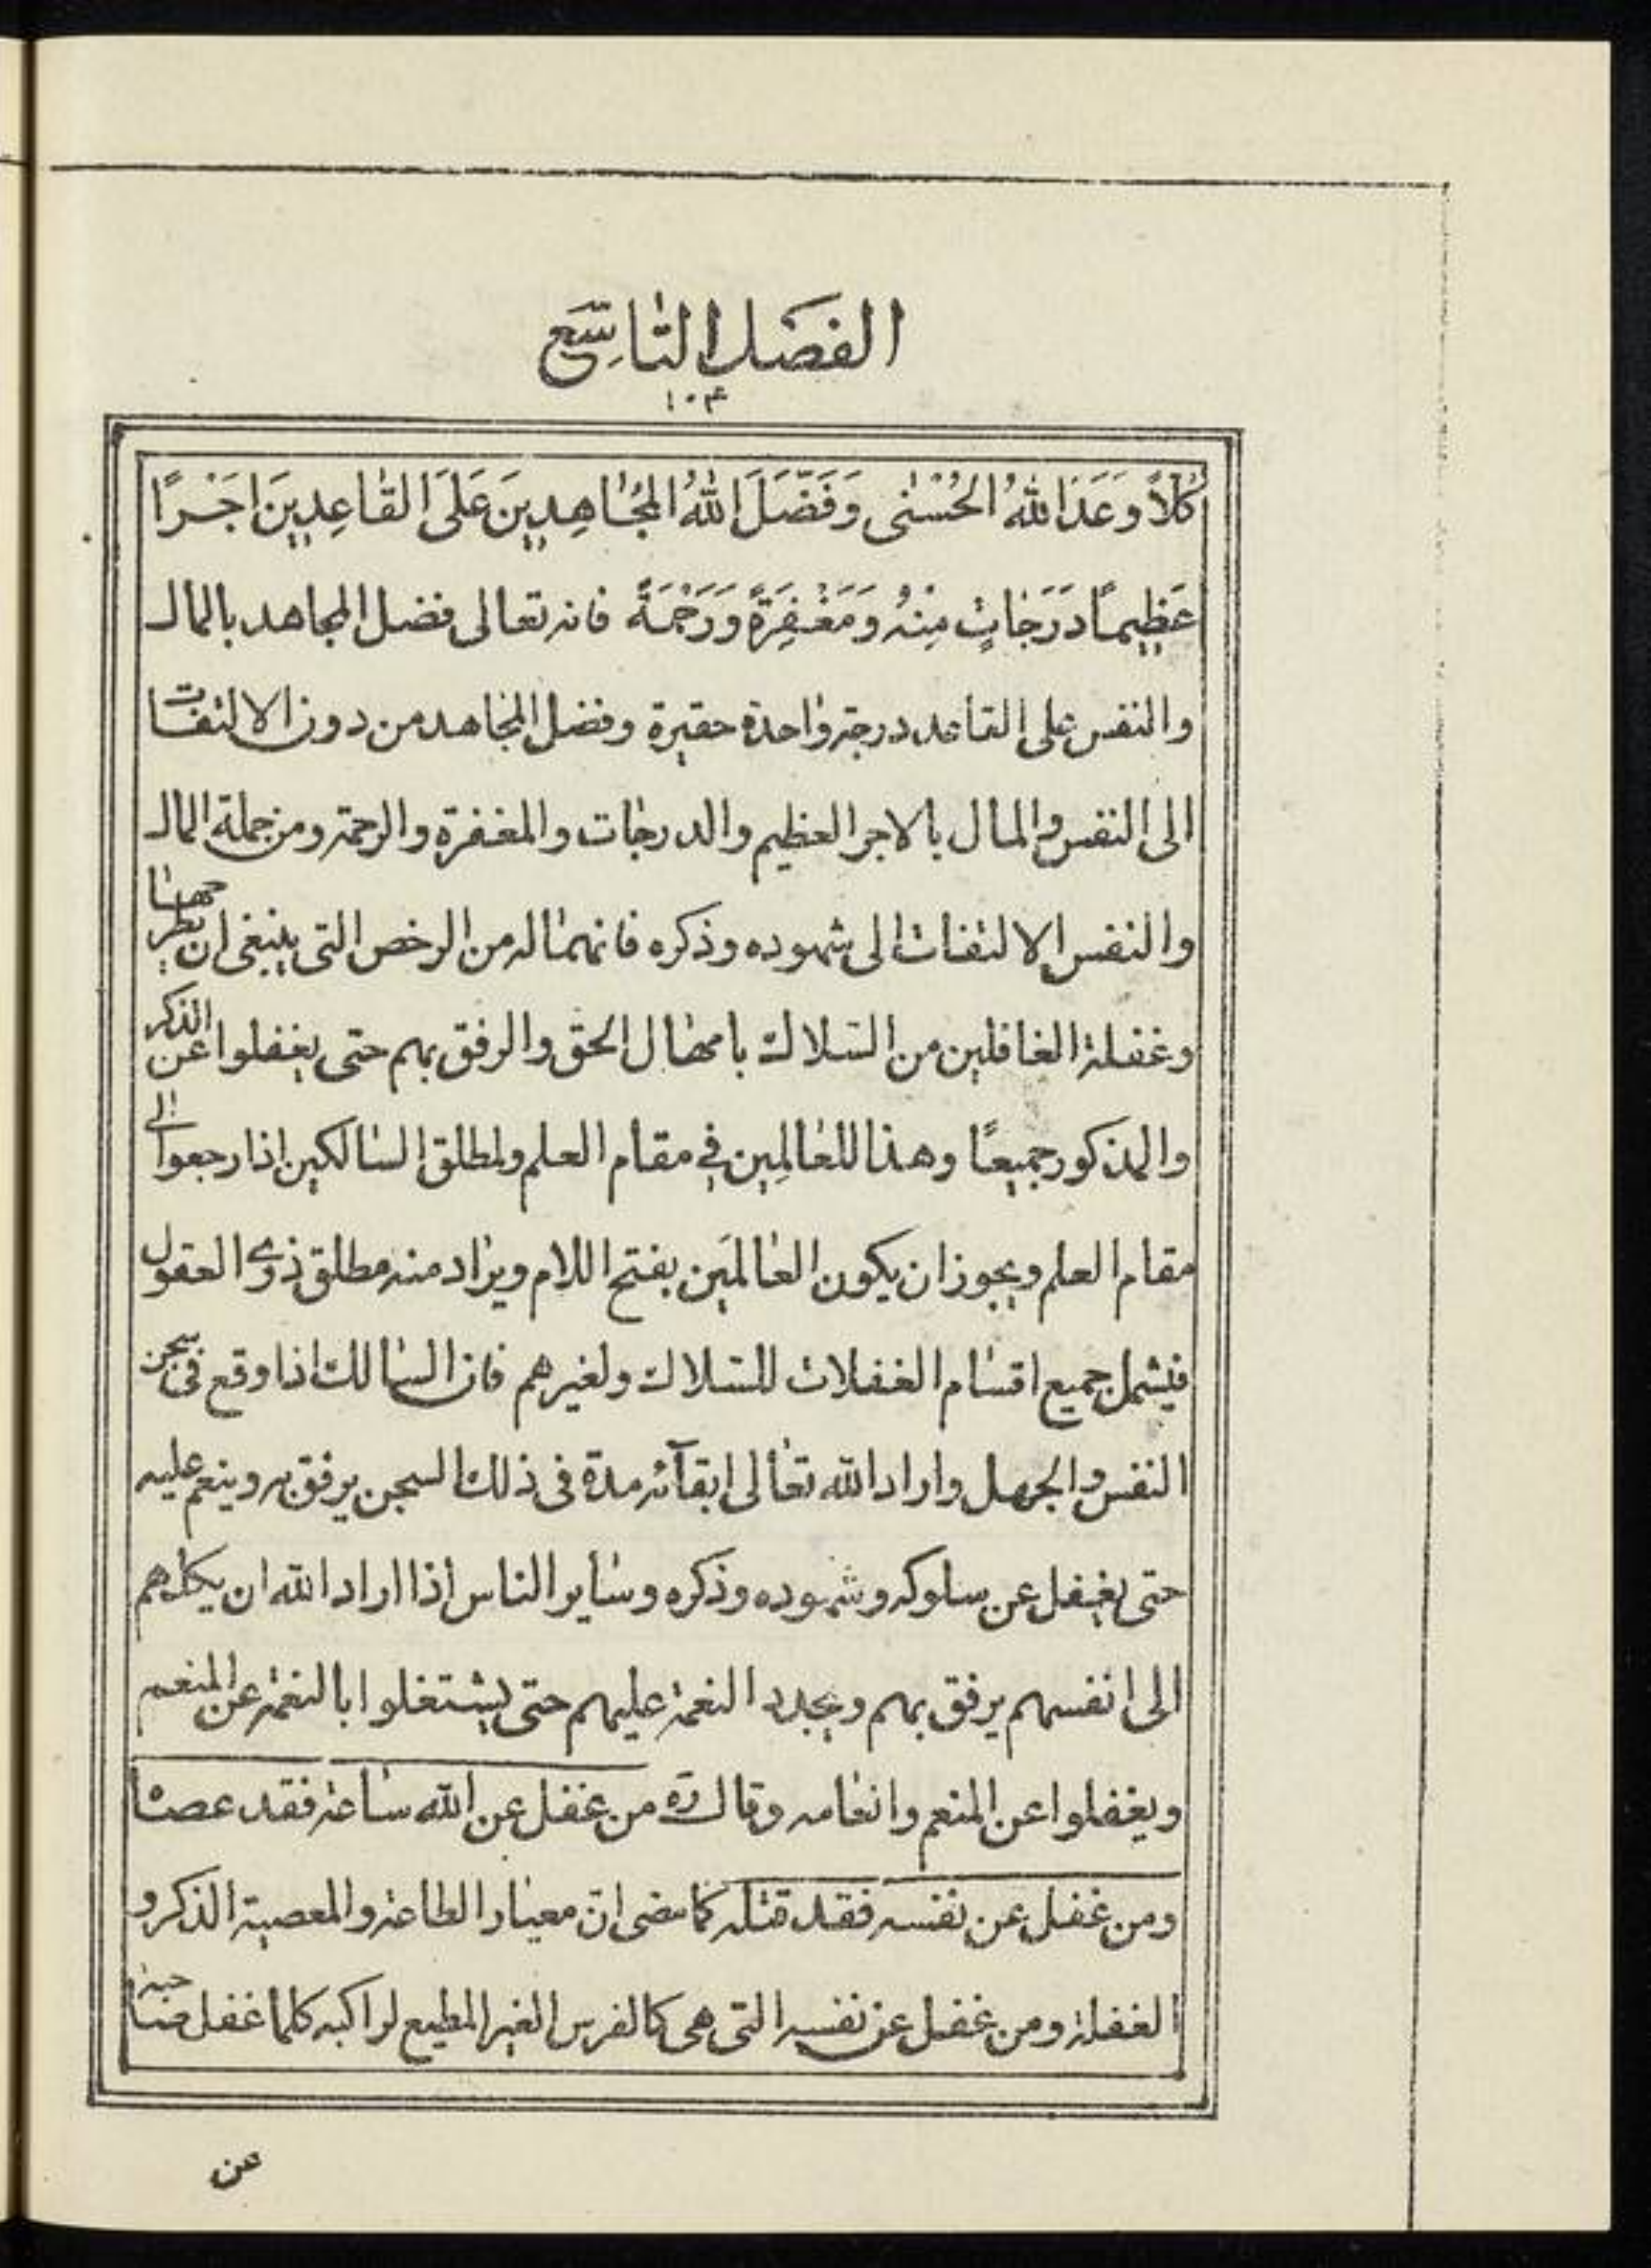 الفصل التاسع
١٠٤
كُلاًّ وَعَدَ اللّٰهُ الْحُسْنٰى وَفَضَّلَ اللّٰهُ الْمُجٰاهِدِينَ عَلَى الْقٰاعِدِينَ اَجْرًا
عَظِيمًا دَرَجٰاتٍ مِنْهُ وَمَغْفِرَةً وَرَحْمَةً فانه تعالى فضل المجاهد بالمال
والنفس على القاعد درجة واحدة حقيرة وفضل المجاهد من دون الالتفات
الى النفس والمال بالاجر العظيم والدرجات والمغفرة والرحمة ومن جملة المال
والنفس الالتفات الى شهوده وذكره فانهما له من الرخص التى ينبغى ان يطهر
وغفلة الغافلين من السلاك بامهال الحق والرفق بهم حتى يغفلوا عن الذكر
والمذكور جميعًا وهذا للعالِمِين في مقام العلم ولمطلق السالكين اذا رجعوا الى
مقام العلم ويجوز ان يكون العالمَين بفتح اللام ويراد منه مطلق ذوى العقول
فيشمل جميع اقسام الغفلات للسلاك ولغيرهم فان السالك اذا وقع فى سجن
النفس والجهل واراد الله تعالى ابقآئه مدة فى ذلك السجن يرفق به وينعم عليه
حتى يغفل عن سلوكه وشهوده وذكره وساير الناس اذا اراد الله ان يكلهم
الى انفسهم يرفق بهم ويجدد النعمة عليهم حتى يشتغلوا بالنعمة عن المنعم
ويغفلوا عن المنعم وانعامه وقال ره من غفل عن الله ساعة فقد عصا
ومن غفل عن نفسه فقد قتله كما مضى ان معيار الطاعة والمعصية الذكر و
الغفلة ومن غفل عن نفسه التى هى كالفرس الغير المطيع لراكبه كلما غفل صاحبه
عن